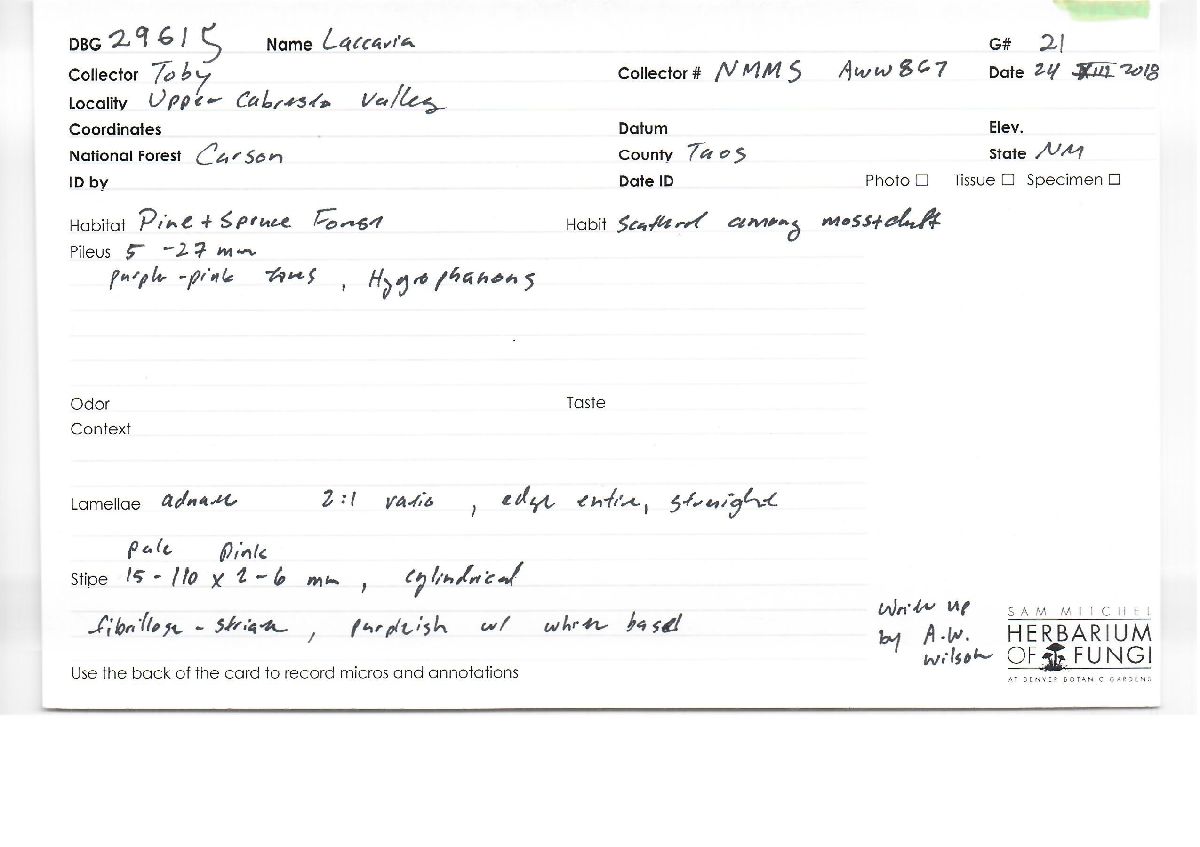 DBG 29615 Name Laccaria G# 21
Collector Toby Collector # NMMS AWW867 Date 24 VIII 2018
Locality Upper Cabresto Valley
Coordinates Datum Elev.
National Forest Carson County Taos State NM
ID by Date ID Photo ☐ Tissue ☐ Specimen ☐
Habitat Pine + Spruce Forest Habit Scattered among moss + duff
Pileus 5 - 27 mm
purple-pink tones, Hygrophanous
Odor Taste
Context
Lamellae adnate 2:1 ratio, edge entire, straight
pale pink
Stipe 15 - 110 x 2 - 6 mm, cylindrical
fibrillose - striate, purplish w/ white basal
Write up
by A.W.
Wilson
SAM MITCHEL
HERBARIUM
OF FUNGI
AT DENVER BOTANIC GARDENS
Use the back of the card to record micros and annotations